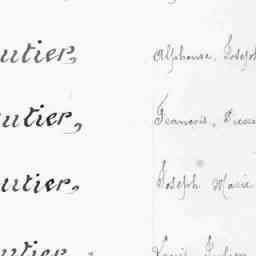 utier, Alphonse, Joseph
utier, Francois, Pierre
utier, Joseph Marie
utier